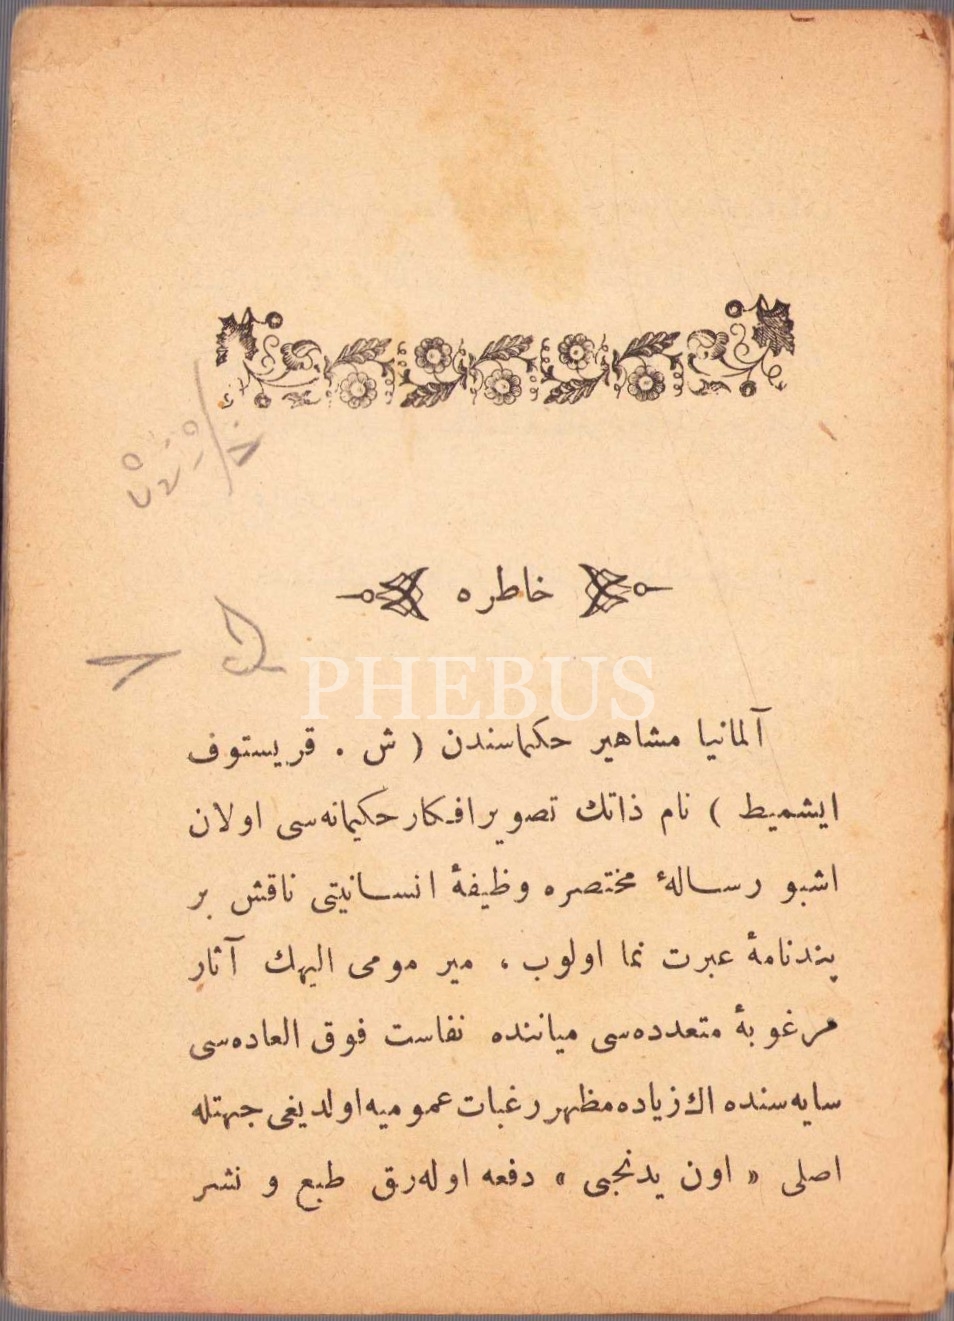 خاطره
PHEBUS
آلمانيا مشاهير حكماسندن ( ش . قريستوف
ايشميط ) نام ذاتك تصوير افكار حكيمانه‌سى اولان
اشبو رسالۀ مختصره وظيفۀ انسانيتى ناقش بر
پندنامۀ عبرت نما اولوب ، مير مومى اليهك آثار
مرغوبۀ متعدده‌سى مياننده نفاست فوق العاده‌سى
سايه‌سنده اك زياده مظهر رغبات عموميه اولديغى جهتله
اصلى « اون يدنجى » دفعه اوله‌رق طبع و نشر